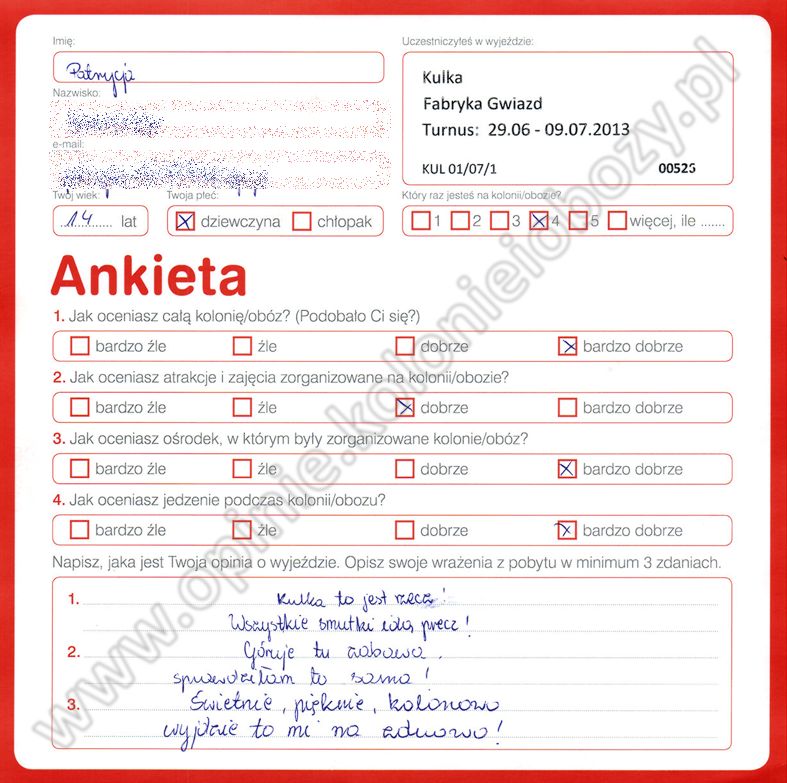 Imię:
Uczestniczyłeś w wyjeździe:
Patrycja
Kulka
Nazwisko:
Fabryka Gwiazd
Turnus: 29.06 - 09.07.2013
e-mail:
KUL 01/07/1 00525
Twój wiek: Twoja płeć: Który raz jesteś na kolonii/obozie?
14 lat dziewczyna chłopak 1 2 3 4 5 więcej, ile .......
Ankieta
1. Jak oceniasz całą kolonię/obóz? (Podobało Ci się?)
bardzo źle źle dobrze bardzo dobrze
2. Jak oceniasz atrakcje i zajęcia zorganizowane na kolonii/obozie?
bardzo źle źle dobrze bardzo dobrze
3. Jak oceniasz ośrodek, w którym były zorganizowane kolonie/obóz?
bardzo źle źle dobrze bardzo dobrze
4. Jak oceniasz jedzenie podczas kolonii/obozu?
bardzo źle źle dobrze bardzo dobrze
Napisz, jaka jest Twoja opinia o wyjeździe. Opisz swoje wrażenia z pobytu w minimum 3 zdaniach.
1. Kulka to jest rzecz!
Wszystkie smutki idą precz!
2. Góruje tu zabawa,
sprawdziłam to sama!
3. Świetnie, pięknie, kolorowo
wyjdzie to mi na zdrowo!
www.opinie.kolonieiobozy.pl